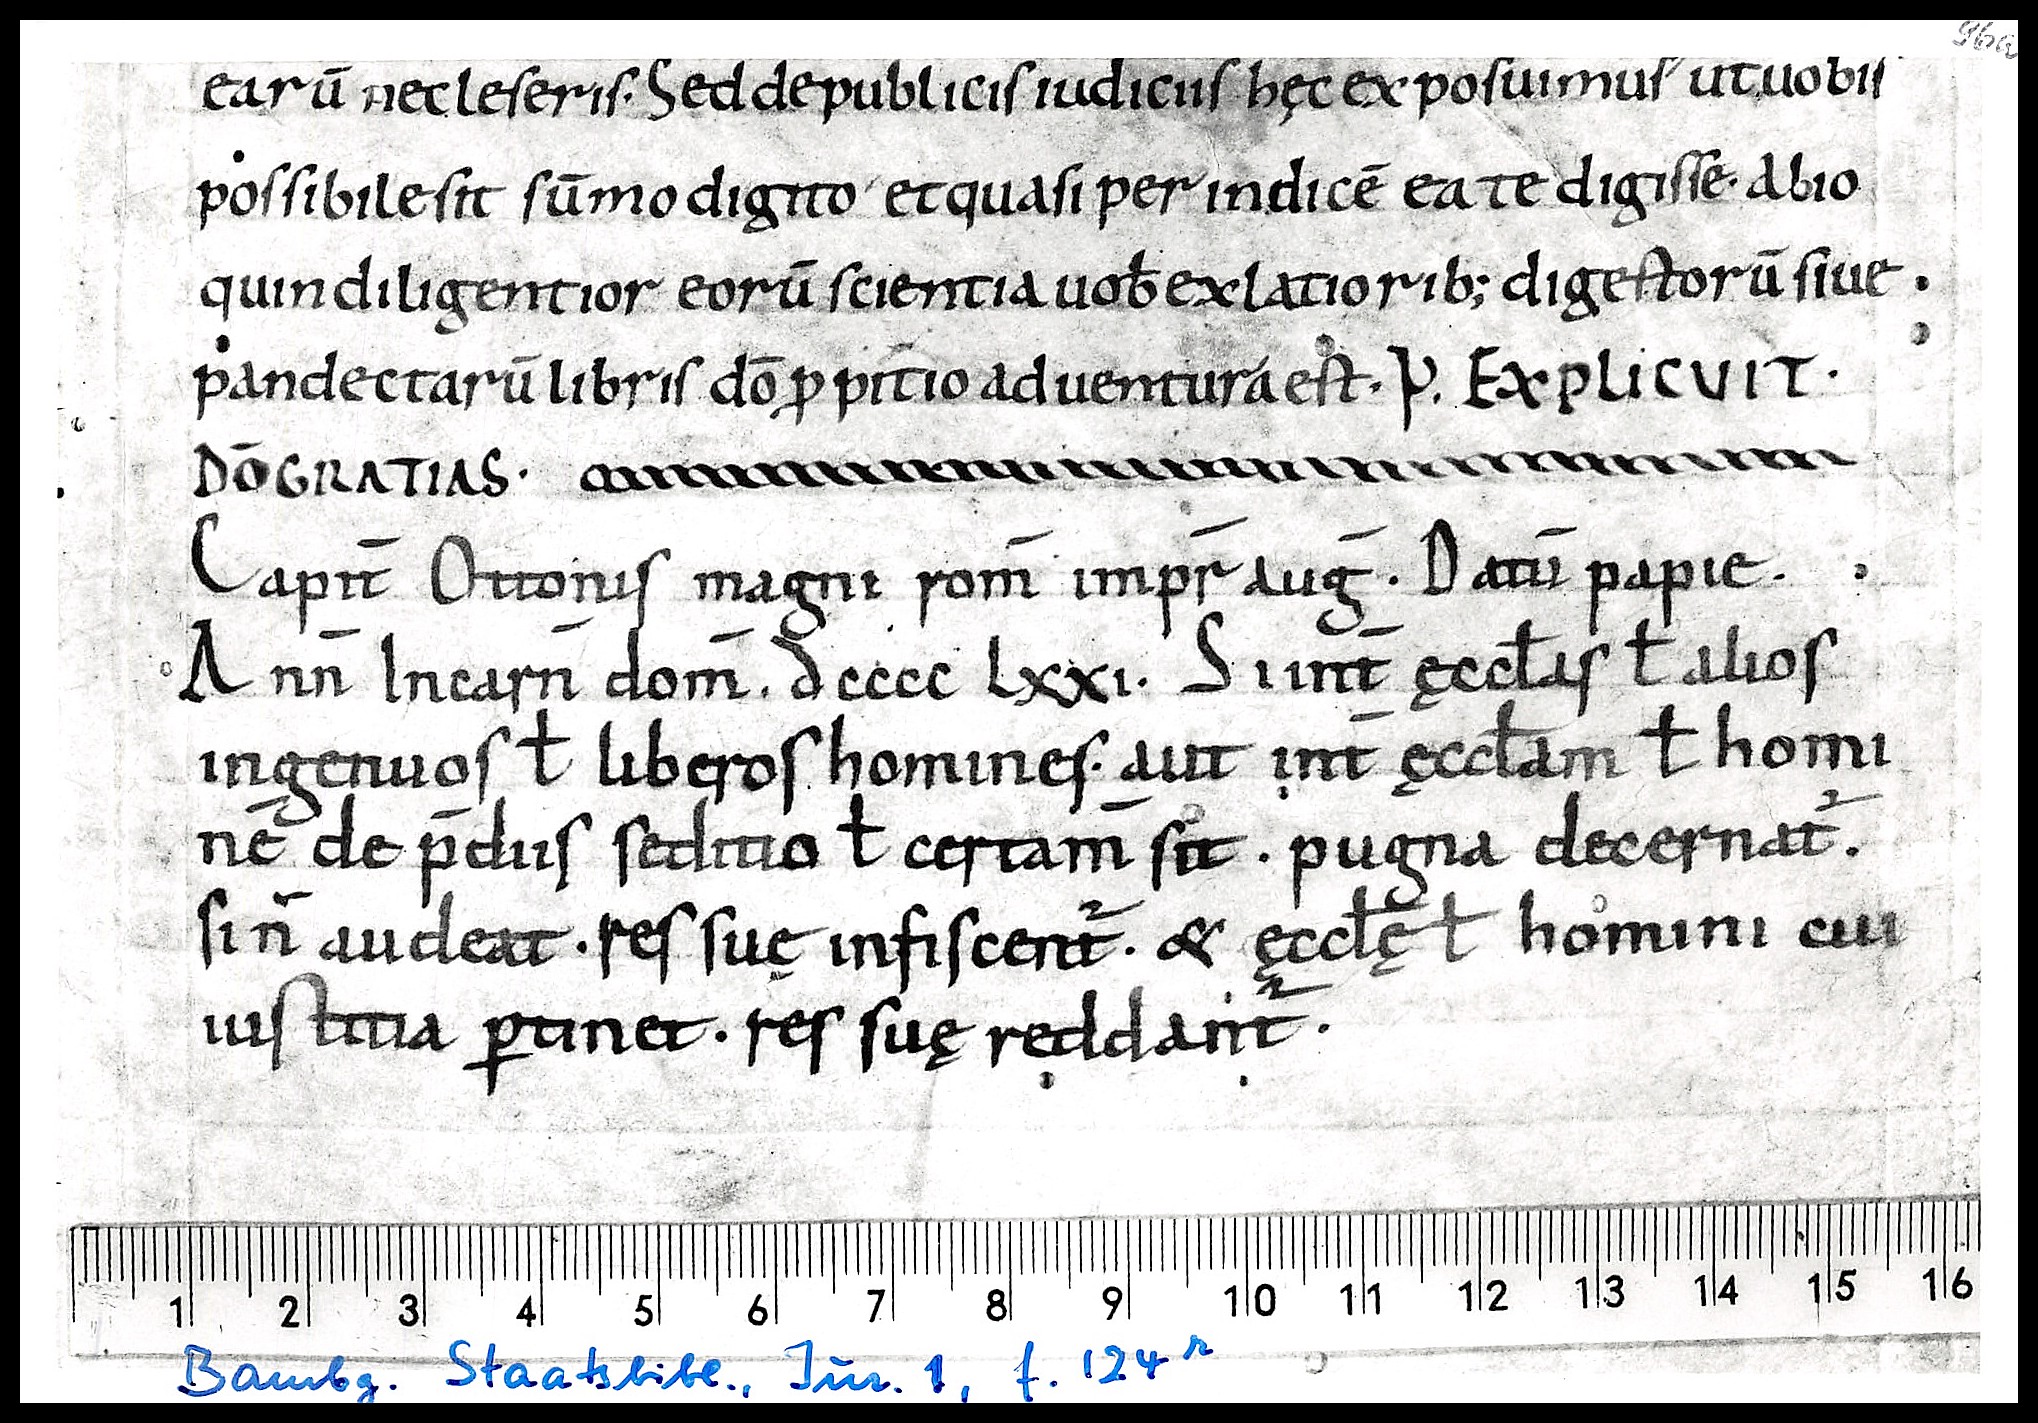 96a
earū necleseris. Sed depublicis iudiciis hęc exposuimus ut uobis
possibile sit sūmo digito et quasi per indicē ea tedigisse. Alio
quin diligentior eorū scientia uob̄ ex latiorib; digestorū siue
pandectarū libris dō ꝓpitio aduentura est. EXPLICVIT.
DŌ GRATIAS.
Capit̄ Ottonis magni rom̄ impr̄ auḡ. Datū papie.
Ann̄ Incarn̄ dom̄. Dcccc lxxi. Si int̄ ęccłas ł alios
ingenuos ł liberos homines. aut int̄ ęccłam ł homi
nē de p̄diis seditio ł certam̄ sit. pugna decernat᷑.
sin̄ audeat. res suę infiscent᷑. & ęccłę ł homini cui
iustitia ꝑtinet. res suę reddant᷑.
1 2 3 4 5 6 7 8 9 10 11 12 13 14 15 16
Bambg. Staatsbibl., Jur. 1, f. 124ʳ